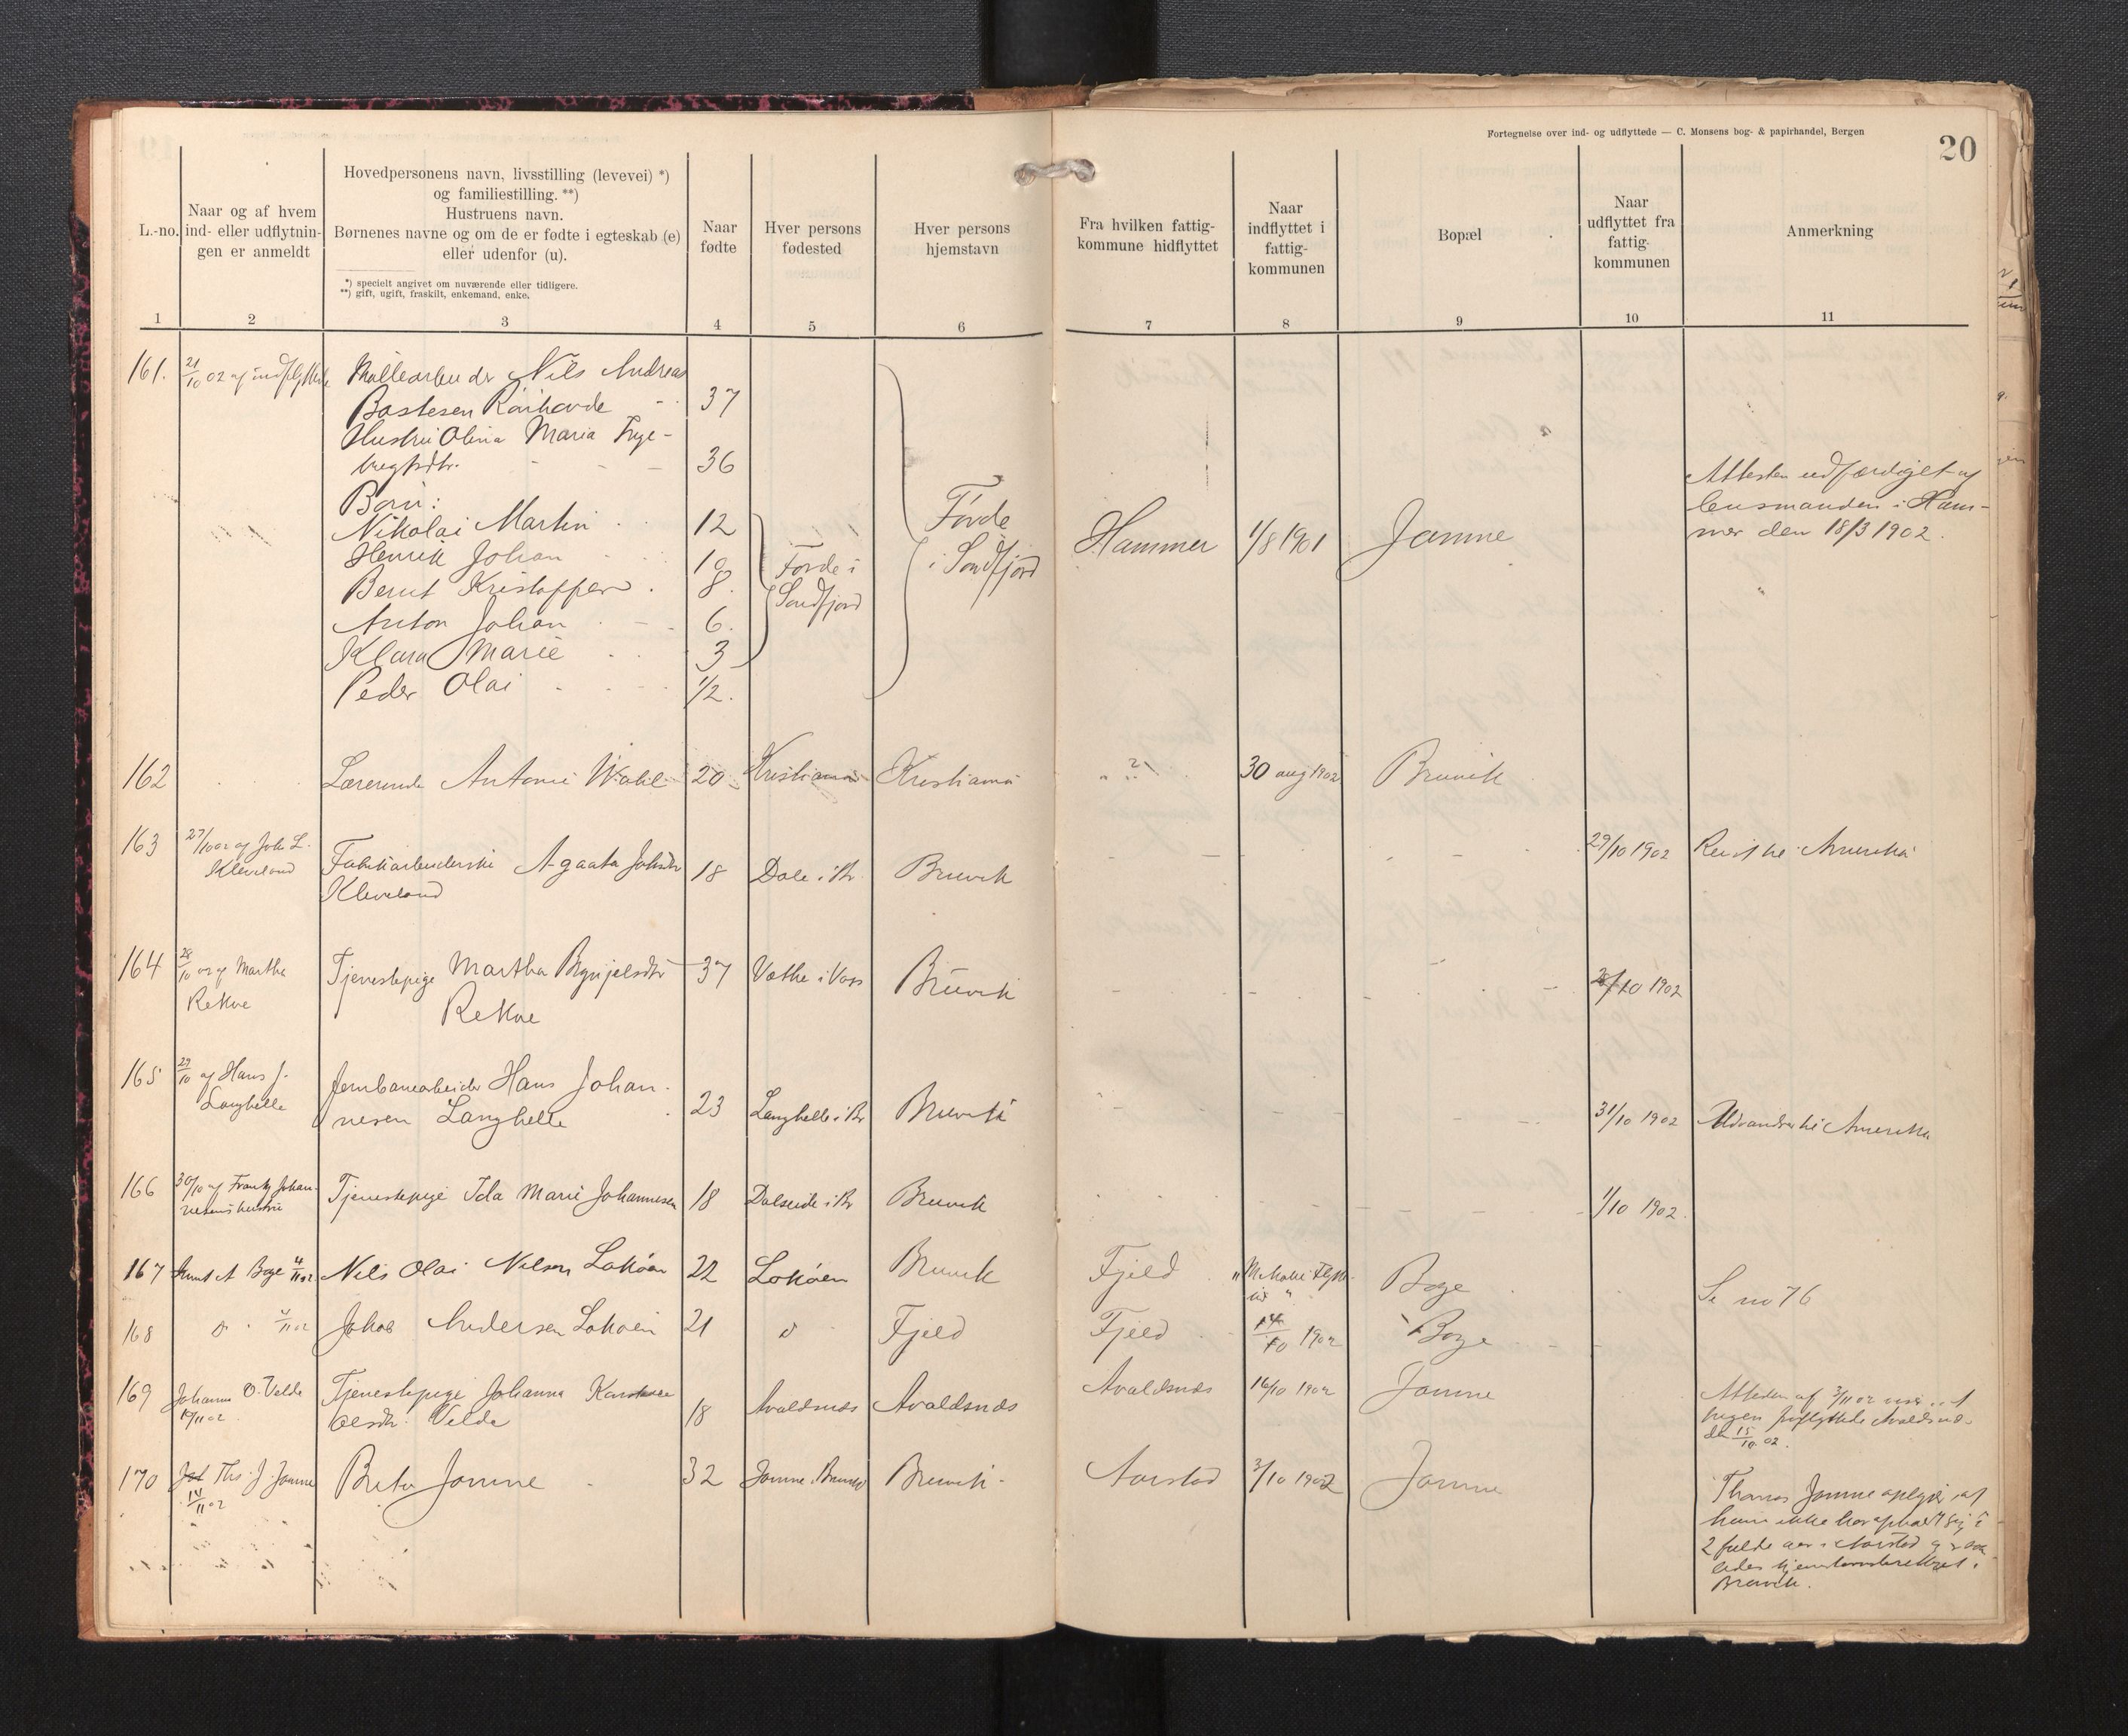 Fortegnelse over ind- og udflyttede — C. Monsens bog- & papirhandel, Bergen
20
L.-no.
Naar og af hvem
ind- eller udflytnin-
gen er anmeldt
Hovedpersonens navn, livsstilling (levevei) *)
og familiestilling. **)
Hustruens navn.
Børnenes navne og om de er fødte i egteskab (e)
eller udenfor (u).
*) specielt angivet om nuværende eller tidligere.
**) gift, ugift, fraskilt, enkemand, enke.
Naar
fødte
Hver persons
fødested
Hver persons
hjemstavn
Fra hvilken fattig-
kommune hidflyttet
Naar
indflyttet i
fattig-
kommunen
Bopæl
Naar
udflyttet fra
fattig-
kommunen
Anmerkning
1 2 3 4 5 6 7 8 9 10 11
161. 21/10 02 af indflytter
Møllearbeider Nils Andreas
Bastesen 37
Hustru Olina Maria
36
Børn:
Nikolai Martin 12
Henrik Johan 10
Bernt Kristoffer 8.
Anton Johan 6.
Klara Marie 3
Peder Olai 1/2.
Førde i
Sondfjord
Førde
i Sondfjord
Hammer 1/8 1901 Jamne
Attesten udfærdiget af
lensmanden i Ham-
mer den 18/3 1902.
162 Lærerinde Antonie 20 Kristiania Kristiania ? 30 aug 1902 Bruvik
163 27/10 02 af Joh. L.
Kleveland
Fabrikarbeiderske Agaata Johsdtr
Kleveland 18 Dale i Br. Bruvik 29/10 1902 Reist til Amerika
164 28/10 02 af Martha
Rekve
Tjenestepige Martha Brynjelsdtr
Rekve 37 i Voss Bruvik /10 1902
165 29/10 af Hans J.
Langhelle
Jernbanearbeider Hans Johan-
nesen Langhelle 23 Langhelle i Br Bruvik 31/10 1902 Udvandret til Amerika
166 30/10 af Frantz Johan-
nesens hustru
Tjenestepige Ida Marie Johannesen 18 Dalseide i Br Bruvik 1/10 1902.
167 Knut A Boge 4/11 02 Nils Olai Nilsen Lokøen 22 Lokøen Bruvik Fjeld Boge Se no 76
168 4/11 02 Jakob Andersen Lokøen 21 Fjeld Fjeld 14/10 1902 Boge
169 Johannes O. Velde
/11 02.
Tjenestepige Johanna
Olsdtr. Velde 18 Avaldsnæs Avaldsnæs Avaldsnæs 16/10 1902 Jamne
Attesten af 3/11 02
fraflyttede
den 15/10 02.
170 Ths. J. Jamne
14/11 02
Brita Jamne 32 Jamne i Bruvik Bruvik Aarstad 3/10 1902 Jamne
Thomas Jamne opgir at
hun ikke har opholdt sig i
2 fulde aar i Aarstad
Bruvik.